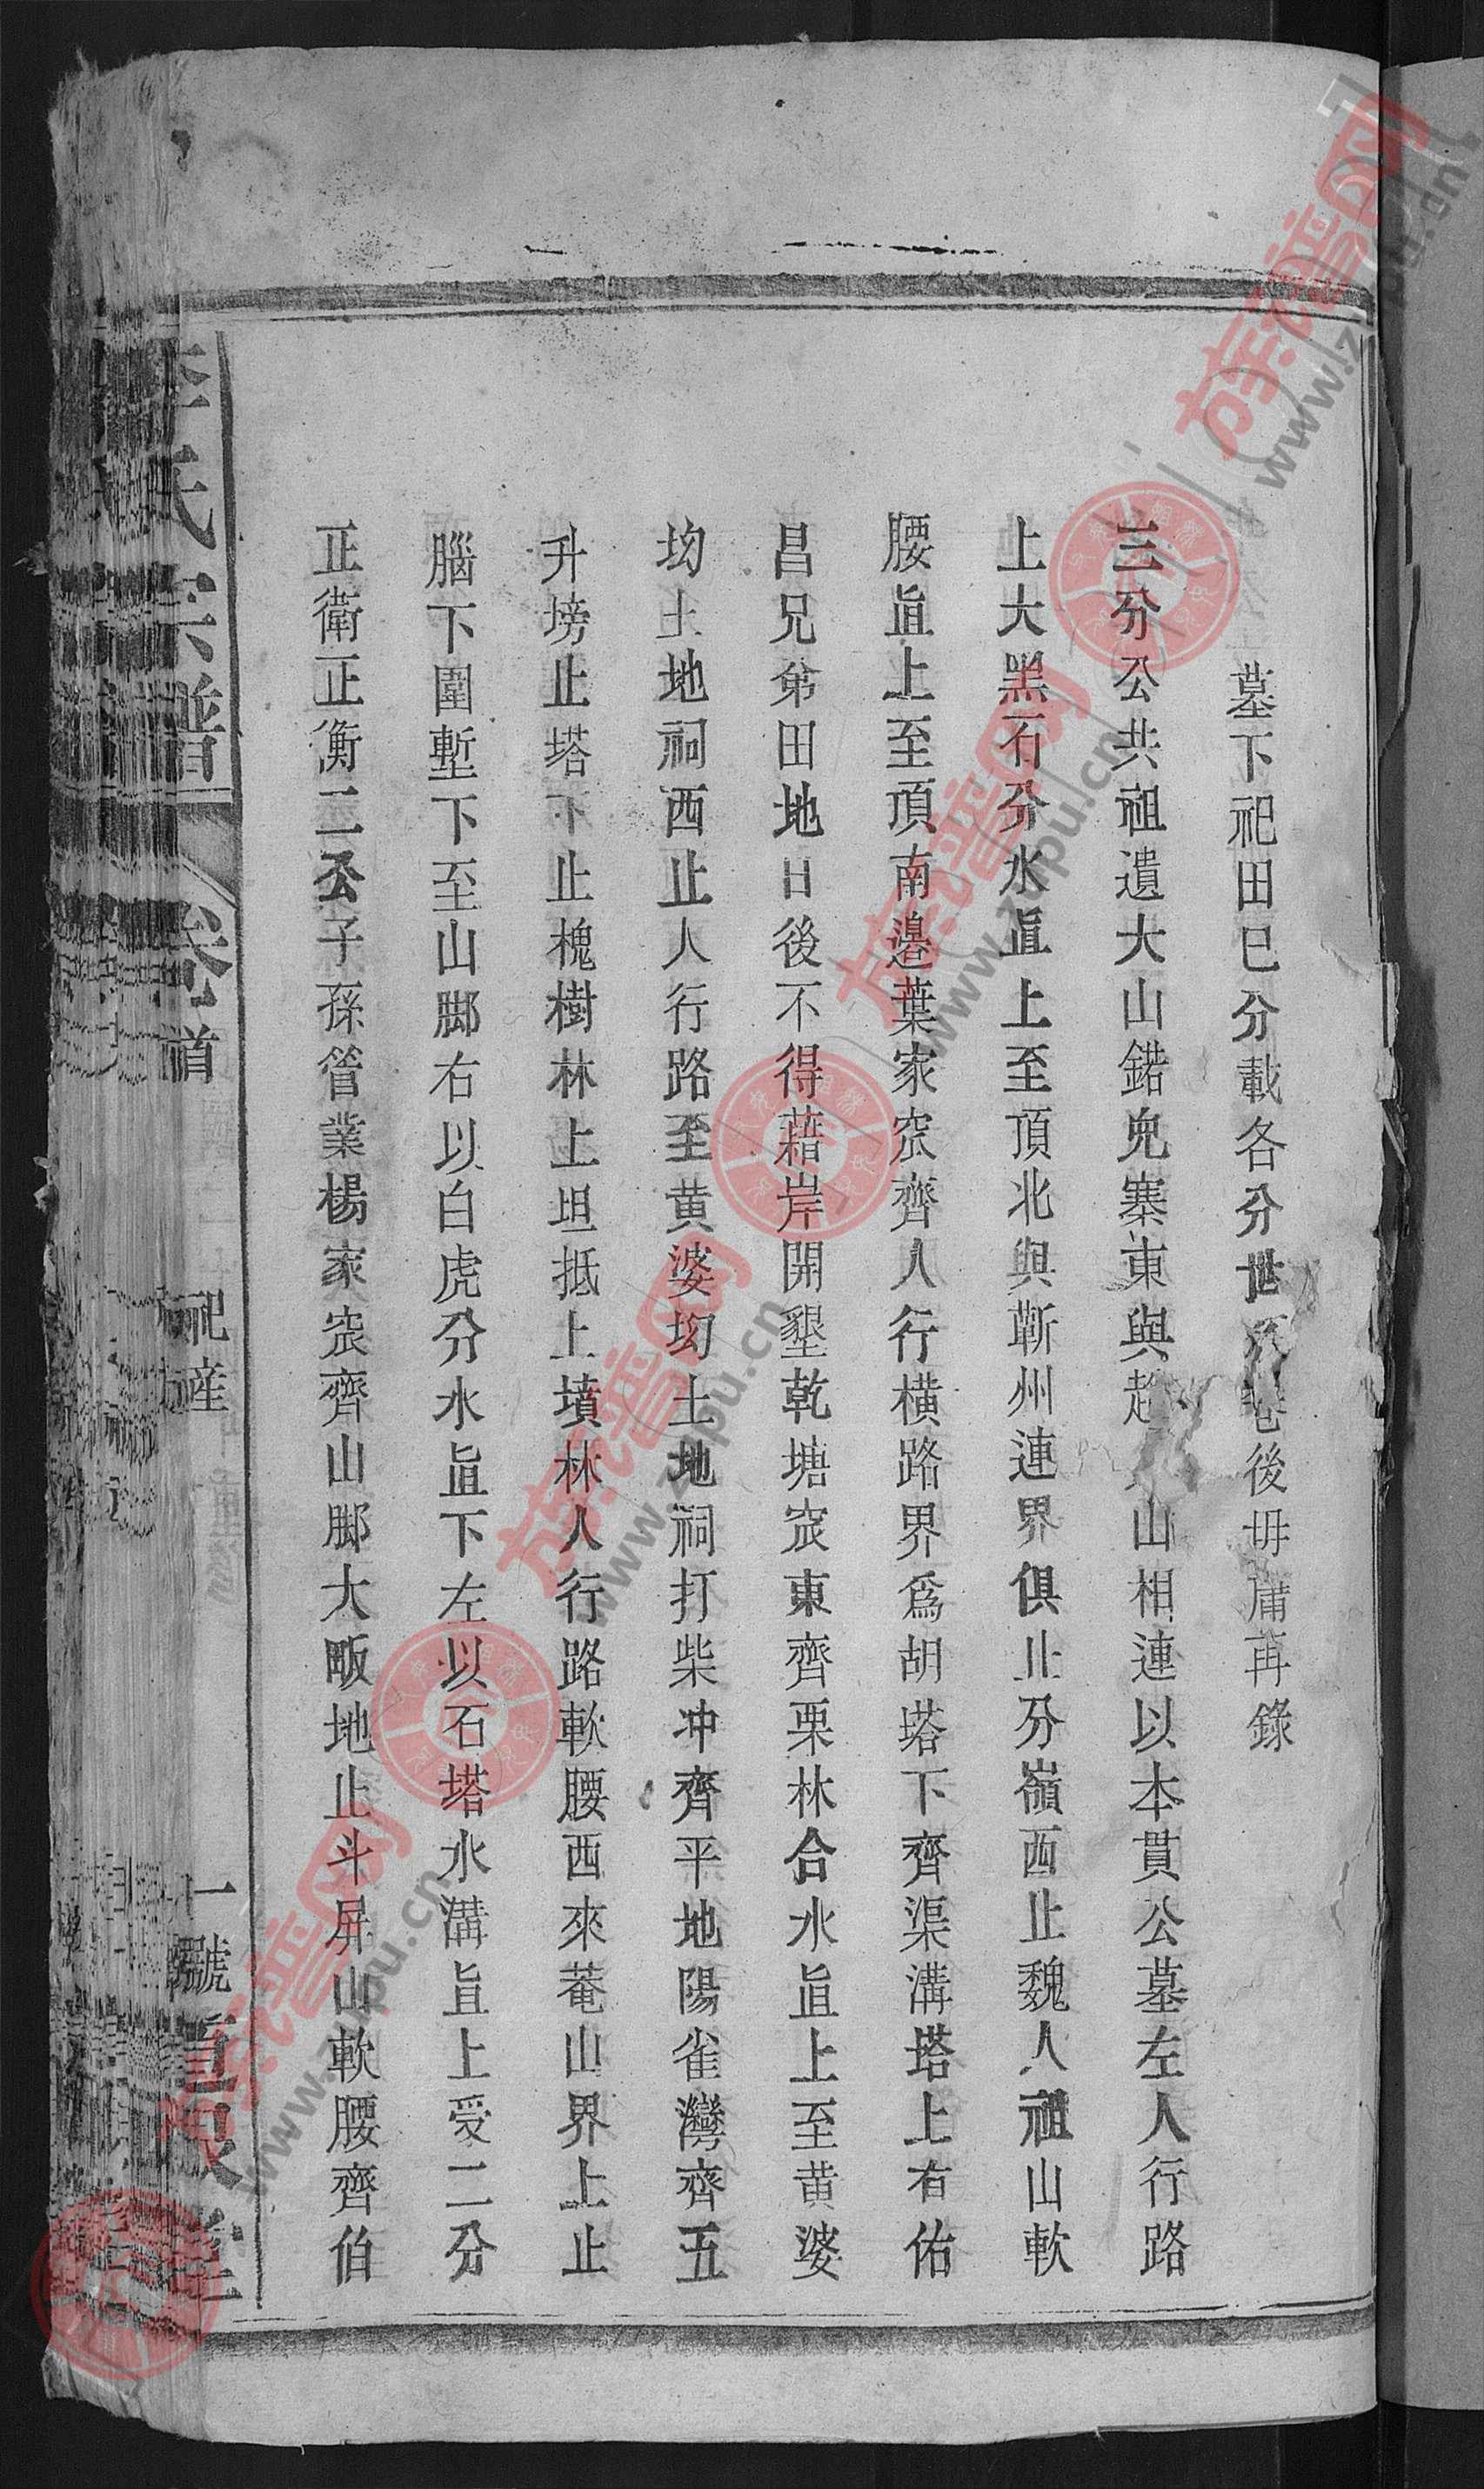 墓下祀田巳分載各分世系卷後毋庸再錄
三分公共祖遺大山鍩兜寨東與趙山相連以本貫公墓左人行路
上大黑石分水直上至頂北與蘄州連界俱止分嶺西止魏人祖山軟
腰直上至頂南邊葉家窊齊人行橫路界爲胡塔下齊渠溝塔上有佑
昌兄弟田地日後不得藉岸開墾乾塘窊東齊栗林合水直上至黄婆
坳土地祠西止人行路至黄婆坳土地祠打柴冲齊平地陽雀灣齊五
升塝止塔下止槐樹林上坦抵上墳林人行路軟腰西來菴山界上止
腦下圍塹下至山脚右以白虎分水直下左以石塔水溝直上受二分
正衛正衡二公子孫管業楊家窊齊山脚大畈地止斗屏山軟腰齊伯
李氏宗譜 卷首 祀產 一號 重恩堂
族譜网
www.zupu.cn
族譜网
www.zupu.cn
族譜网
www.zupu.cn
族譜网
www.zupu.cn